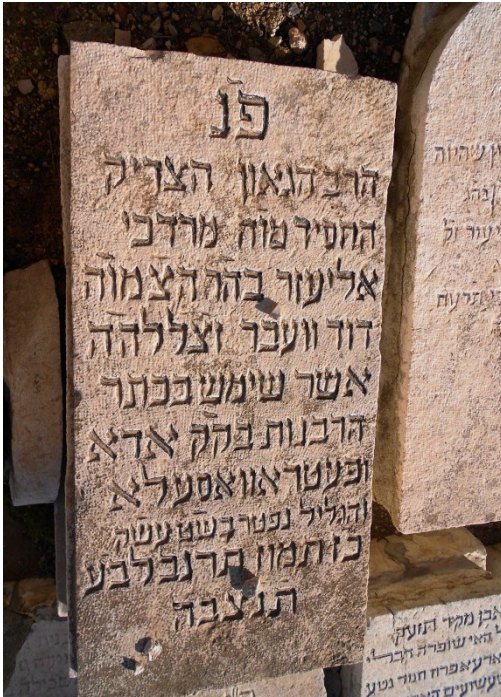 פנ
הרב הגאון הצדיק
החסיד מוה מרדכי
אליעזר בהרהצ מוה
דוד וועבר זצללהה
אשר שימש בכתר
הרבנות בקק אדא
ופעטראוואסעלא
והגליל נפטר בשט עשק
כז תמוז תרנב לבע
תנצבה
אבן מקיר תזעק
האי שופרה